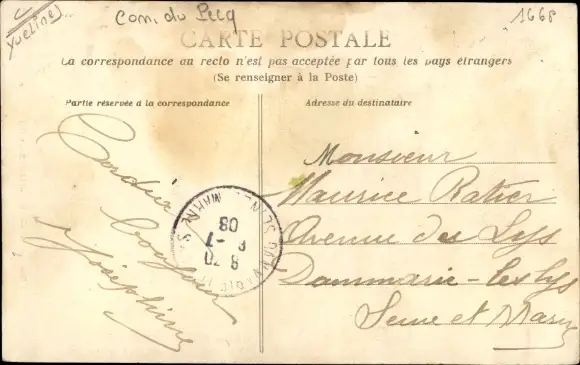 Yvelines
Com. du Pecq
1668
CARTE POSTALE
La correspondance au recto n'est pas acceptée par tous les pays étrangers
(Se renseigner à la Poste)
Partie réservée à la correspondance
Adresse du destinataire
Cordial
Bonjour
Joséphine
Monsieur
Maurice Ratier
Avenue des Lys
Dammarie-les-lys
Seine et Marne
8 70
08
MARNE